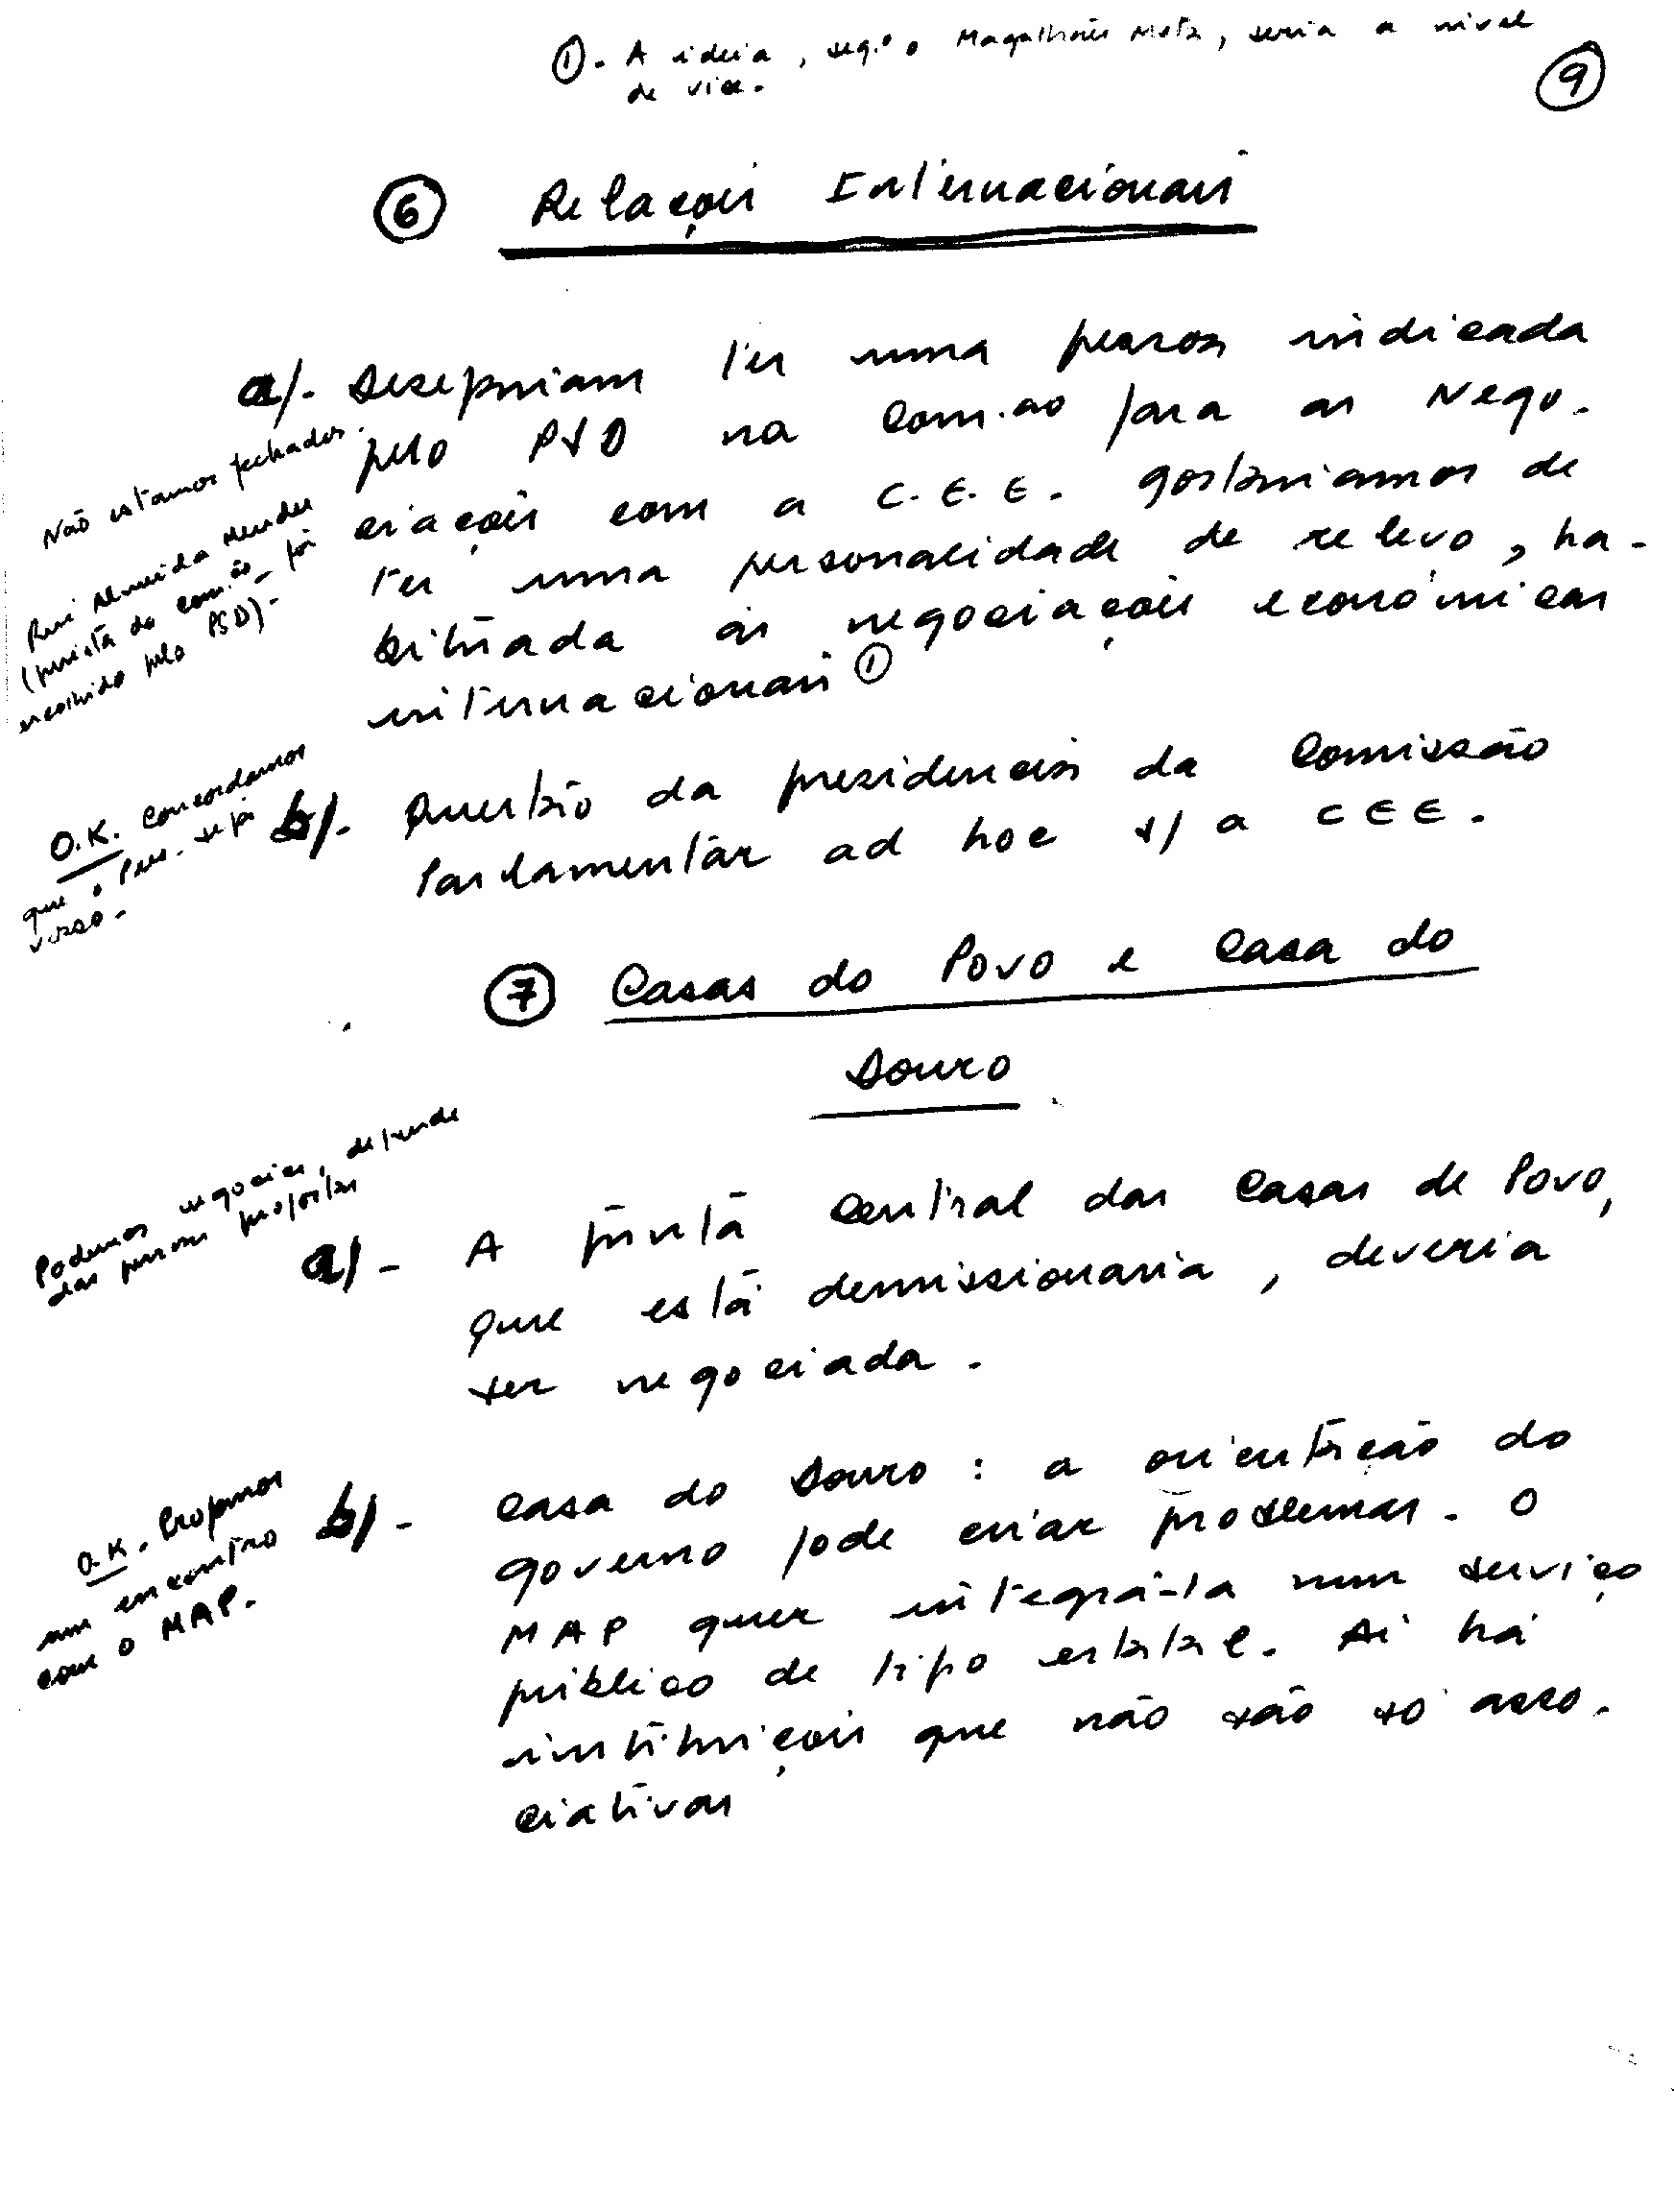 ① - A ideia, seg.º o Magalhães Mota, seria a nível
de vice.
⑨
⑥ Relações Internacionais
a) - Desejariam ter uma pessoa indicada
pelo PSD na com.ão para as Nego-
ciações com a C.E.E. Gostaríamos de
ter uma personalidade de relevo, ha-
bituada às negociações económicas
internacionais ①
Não estamos fechados.
Rui Almeida Mendes
(jurista da com.ão foi
escolhido pelo PSD) -
b) - Questão da presidência da Comissão
Parlamentar ad hoc s/ a CEE.
O.K. Concordamos
que o Pres. seja
vosso -
⑦ Casas do Povo e Casa do
Douro
a) - A Junta Central das Casas de Povo,
que está demissionária, deveria
ser negociada.
Podemos negociar, depende
das pessoas propostas
b) - Casa do Douro : a orientação do
governo pode criar problemas. O
MAP quer integrá-la num serviço
público de tipo estatal. Aí há
instituições que não são só asso-
ciativas
O.K. Propomos
um encontro
com o MAP.